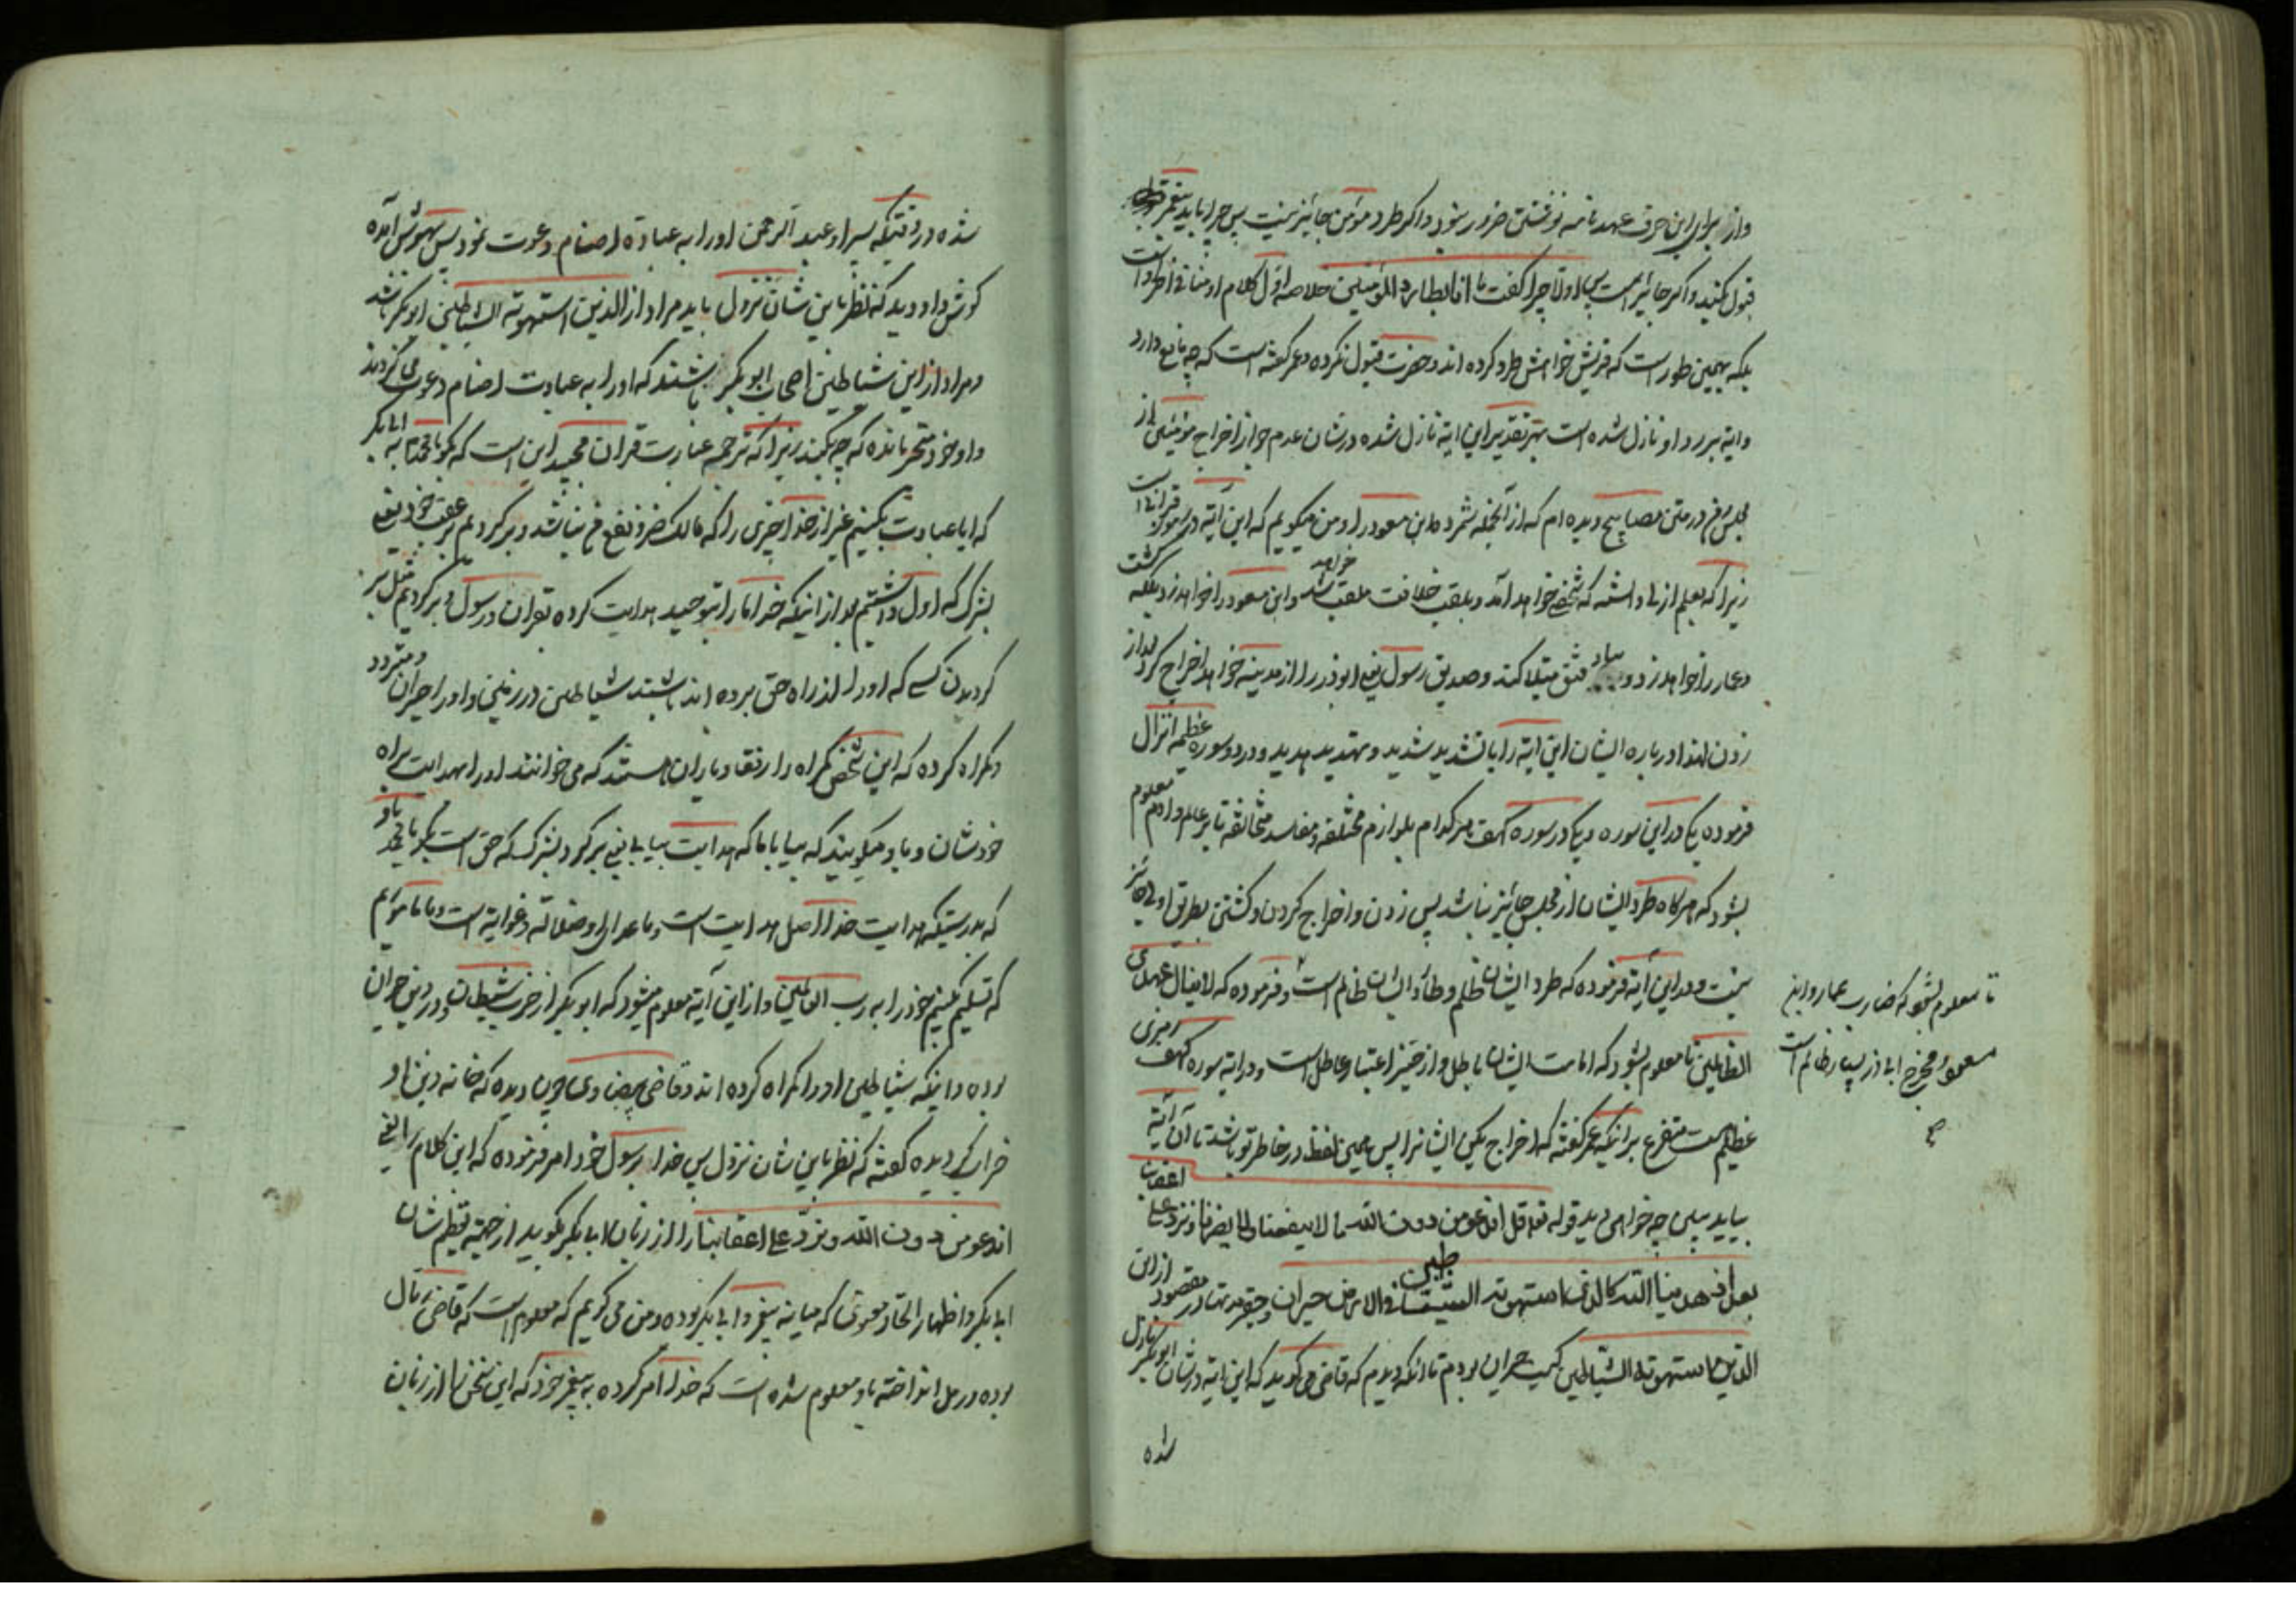 واز برای این حرف عهدنامه نوشتن ضرور نبود و اکر طرد مؤمن جائز نیست پس چرا باید پیغمبر
قبول کنید و اکر جائز است پس اولا چرا کفت ما انا بطارد المؤمنین خلاصه اول کلام او منافی آخر او است
بلکه بهمین طور است که قریش خواهش طرد کرده اند و حضرت قبول نکرده و عمر کفته است که چه مانع دارد
وایه بر رد او نازل شده است بهر تقدیر این ایه نازل شده در شان عدم جواز اخراج مؤمنین از
مجلس و در متن مصابیح دیده ام که از آنجمله شمرده ابن مسعود را و من میکویم که این آیه در
زیرا که بعلم ازلی دانسته که شخصی خواهد آمد و بلقب خلافت ملقب خواهد شد و ابن مسعود را خواهد زد بلکه کشت
و عمار را خواهد زد و بباد فتق مبتلا کند و صدیق رسول یعنی ابوذر را از مدینه خواهد اخراج کرد بعد از
زدن لهذا در باره ایشان این ایه را با تشدید شدید و تهدید مدید و در دو سوره عظیمه انزال
فرموده یکی در این سوره و یکی در سوره کهف هر کدام بلوازم مختلفه و مفاسد متخالفة تا بر عالم و آدم معلوم
بشود که هرکاه طرد ایشان از مجلس جائز نباشد پس زدن و اخراج کردن و کشتن بطریق اولی جائز
نیست و در این آیه فرموده که طرد ایشان ظلم و طارد ایشان ظالم است و فرموده که لا ینال عهدی
الظالمین تا معلوم بشود که امامت ایشان باطل و از حیز اعتبار عاطل است و در ایه سوره کهف رمزی
عظیم است متفرع بر انکه عمر کفته که اخراج بکن ایشانرا پس همین لفظ در خاطر تو باشد تا آن آیه
بیاید ببین چه خواهی دید قوله تعالی قل اندعو من دون الله ما لا ینفعنا ولا یضرنا و نرد علی اعقابنا
بعد اذ هدینا الله کالذی استهوته الشیاطین فی الارض حیران و حقیر در مقصود از این
الذین استهوته الشیاطین کیست حیران بودم تا انکه دیدم که قاضی می کوید که این ایه در شان ابوبکر نازل
شده
تا معلوم بشود که ضارب عمار و ابن
مسعود و مخرج ابی ذر بسیار ظالم است
شده در وقتیکه پسر او عبد الرحمن اورا به عبادة اصنام دعوت نمود پس بهوش آمده
کوش داد و دید که نظر باین شان نزول باید مراد از الذین استهوته الشیاطین ابوبکر باشد
و مراد از این شیاطین اصحاب ابوبکر باشند که اورا به عبادت اصنام دعوت می کردند
و او خود متحیر مانده که چه بکند زیرا که ترجمه عبارت قران مجید این است که بکو یا محمد به ابابکر
که ایا عبادت بکنیم غیر از خدا چیزی را که مالک ضر و نفع نباشد و برکردیم بر عقب خود یعنی
بشرک که اول داشتیم بعد از اینکه خدا ما را بتوحید هدایت کرده بقران و رسول و برکردیم مثل بر
کردیدن کسی که اورا از راه حق برده اند باشند شیاطین در زمین و اورا حیران و متردد
و کمراه کرده که این شخص کمراه را رفقا و یاران هستند که می خوانند اورا بهدایت براه
خودشان و باو میکویند که بیا با ما که هدایت بیابی یعنی برکرد بشرک که حق است بکو یا محمد باو
که بدرستیکه هدایت خدا اصل هدایت است و ماعدای او ضلالة و غوایه است و ما ماموریم
که تسلیم بکنیم خود را به رب العالمین و از این آیه معلوم میشود که ابوبکر از حزب شیطان و در دین حیران
بوده و اینکه شیاطین اورا کمراه کرده اند و قاضی بیضاوی چون دیده که خانه دین او
خراب کردیده کفته که نظر باین شان نزول پس خدا رسول خود را امر فرموده که این کلام را یعنی
اندعو من دون الله و نرد علی اعقابنا را از زبان ابی بکر بکوید از جهة تعظیم شان
ابی بکر و اظهار اتحاد معنوی که میانه پیغمبر و ابی بکر بوده و من می کویم که معلوم است که قاضی رمال
بوده و رمل انداخته باو معلوم شده است که خدا امر کرده به پیغمبر خود که این سخن را از زبان